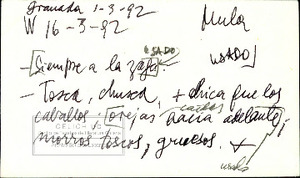 Granada 1-3-92
W 16-3-92
Mula
USADO
USADO
- Siempre a la zaga.
- Tosca, chusca, + chica que los
caballos, orejas hacia adelante
morros toscos, gruesos. +